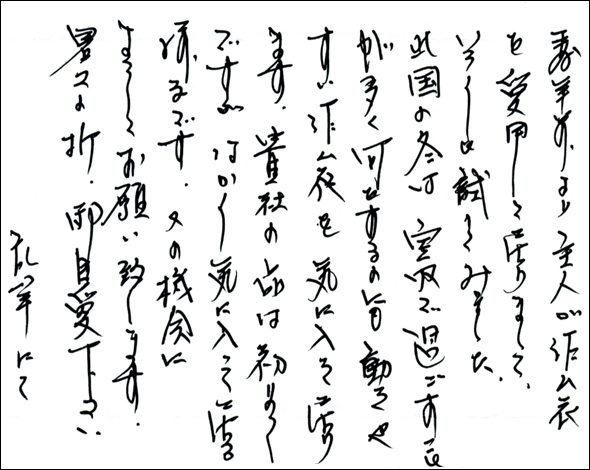 数年前より主人が作ム衣
を愛用して居りまして、
いろいろ試してみました
此国の冬は室内で過ごすこと
が多く何をするのにも動きや
すい作ム衣を気に入って居り
ます。貴社の品は初めて
ですがなかなか気に入って居る
様子です。又の機会に
よろしくお願い致します。
暑さの折、御自愛下さい
乱筆にて